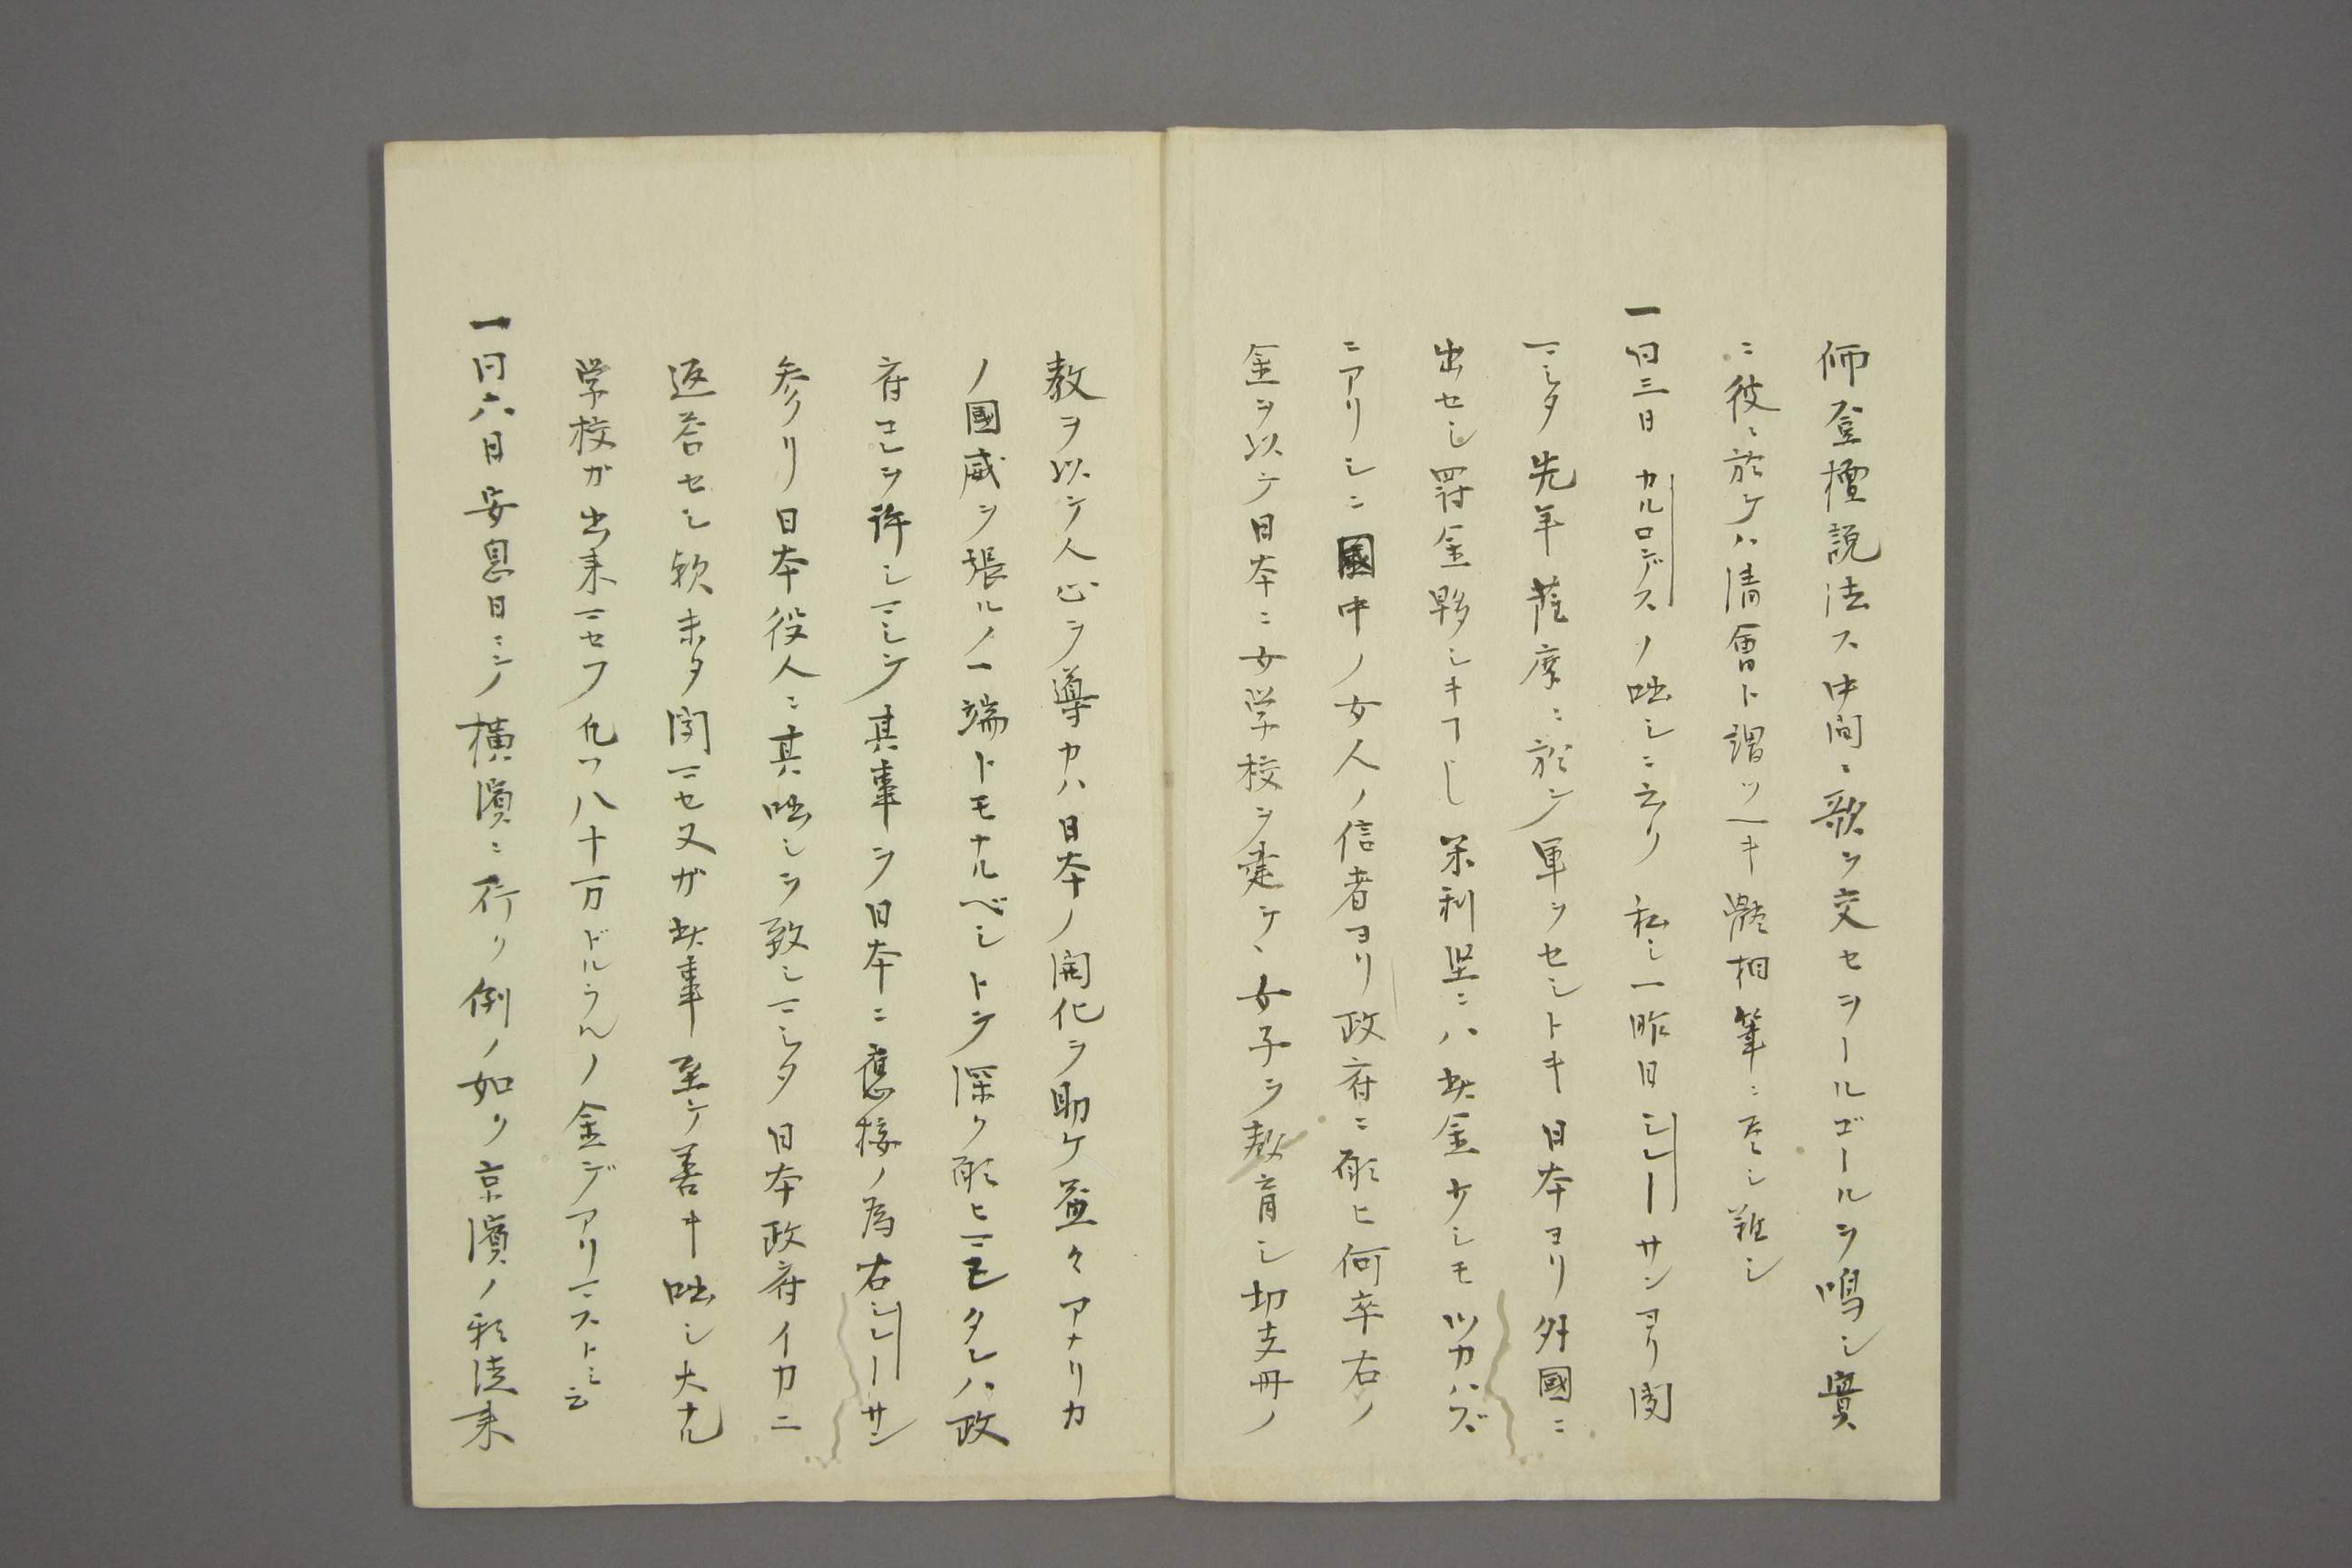 師登檀説法ス中間ニ歌ヲ交セヲールゴールヲ鳴シ實
ニ彼ニ於ケハ清會ト謂ツヘキ躰相筆ニ尽シ難シ
一同三日カルロデスノ咄シニ云リ私シ一昨日ミレーサンヨリ聞
マシタ先年薩摩ニ於テ軍ヲセシトキ日本ヨリ外國ニ
出セシ罸金夥シキヿし米利堅ニハ此金少シモツカハズ
ニアリシニ國中ノ女人ノ信者ヨリ政府ニ願ヒ何卒右ノ
金ヲ以テ日本ニ女学校ヲ建テ丶女子ヲ教育シ切支丹ノ
教ヲ以テ人心ヲ導カハ日本ノ開化ヲ助ケ益々アナリカ
ノ國威ヲ張ルノ一端トモナルベシトテ深ク願ヒマモタレハ政
府コレヲ許シマシテ其事ヲ日本ニ應接ノ為右ミレーサン
参リ日本役人ニ其咄シヲ致シマシタ日本政府イカニ
返荅セシ欤未タ聞マセヌガ此事至テ善キ咄シ大ナル
学校ガ出来マセフ凡ツ八十万ドルラルノ金デアリマストミ云
一同六日安息日ニシテ横濱ニ行リ例ノ如ク京濱ノ彩法来